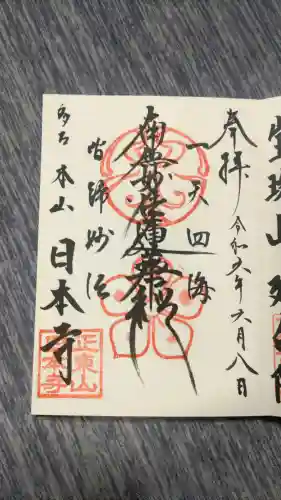 奉拝
令和六年六月八日
一天四海
南無妙法蓮華経
皆帰妙法
多古 本山 日本寺
正東山
日本寺